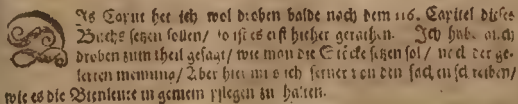 DIs Capitel het ich wol droben balde nach dem 116. Capitel dieses
Buchs setzen sollen / so ist es erst hieher gerathen. Ich habe auch
droben zum theil gesagt / wie man die Stöcke setzen sol / nach der ge-
lerten meinung / Aber hier mus ich ferner von den sachen schreiben /
wie es die Bienleute in gemein pflegen zu halten.